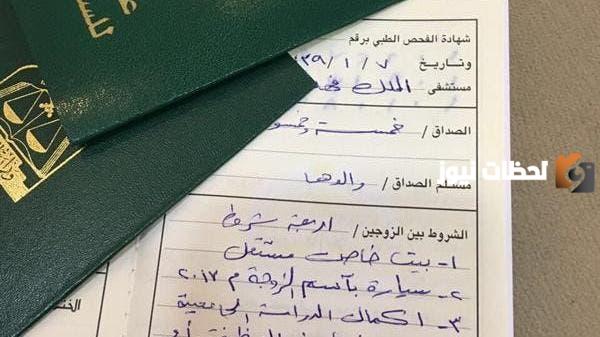 شهادة الفحص الطبي برقم
وتاريخ ٧ / ١ / ٣٩
مستشفى الملك فهد
الصداق / خمسة وخمسو
مستلم الصداق / والدها
الشروط بين الزوجين / اربعة شروط
١- بيت خاص مستقل
٢- سيارة بأسم الزوجة م ٢٠١٧
٣- اكمال الدراسة الجامعية
لحظات نيوز